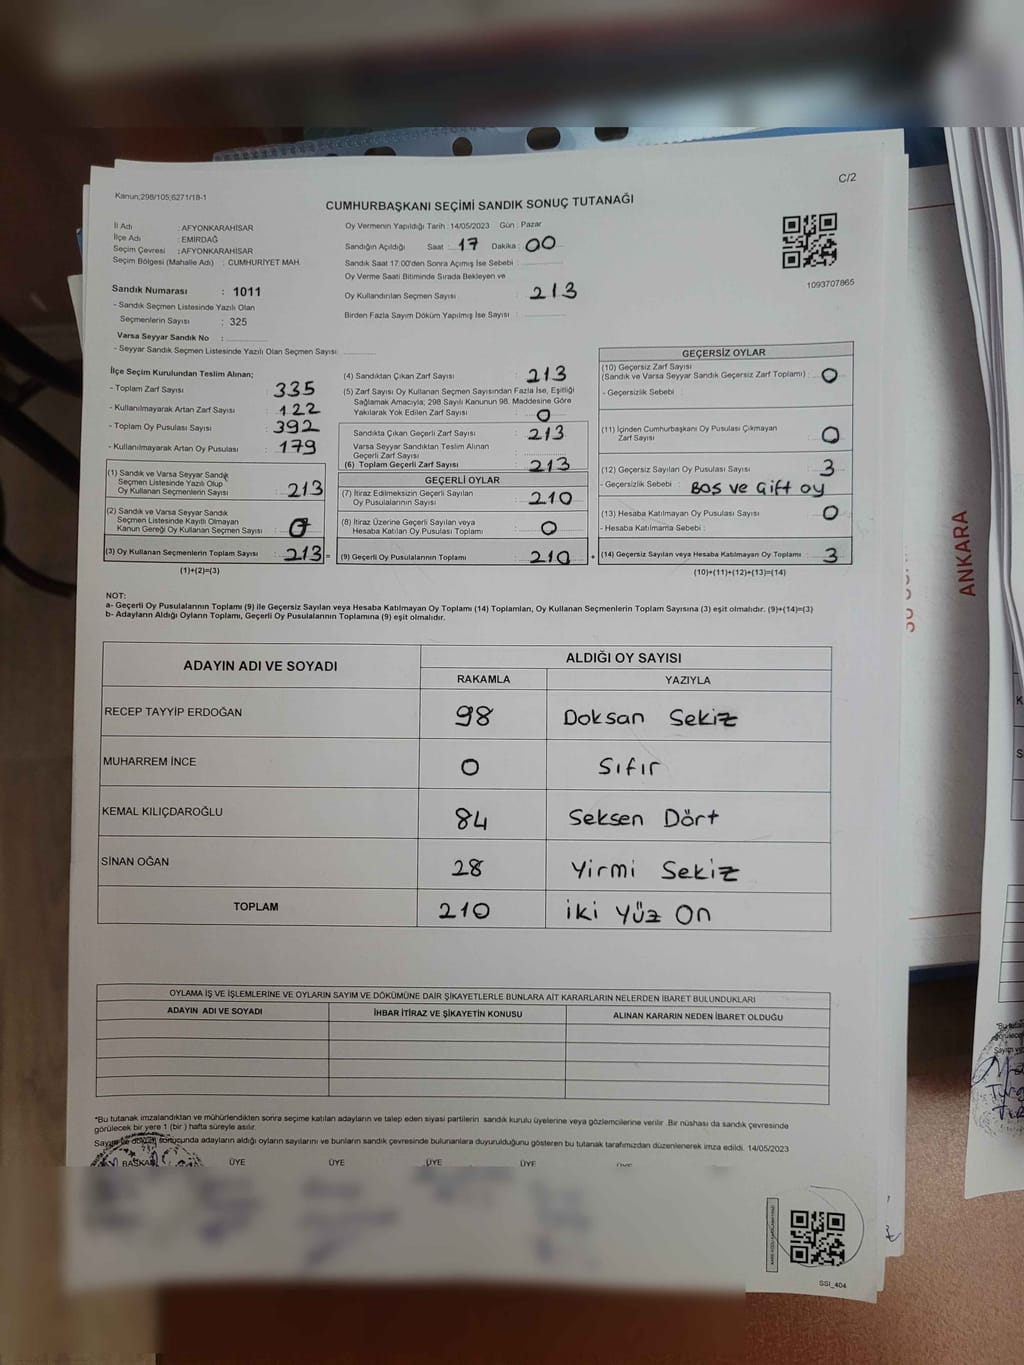 C/2
Kanun;298/105;6271/18-1
CUMHURBAŞKANI SEÇİMİ SANDIK SONUÇ TUTANAĞI
İl Adı : AFYONKARAHİSAR
İlçe Adı : EMİRDAĞ
Seçim Çevresi : AFYONKARAHİSAR
Seçim Bölgesi (Mahalle Adı) : CUMHURİYET MAH.
Sandık Numarası : 1011
- Sandık Seçmen Listesinde Yazılı Olan
Seçmenlerin Sayısı : 325
Varsa Seyyar Sandık No :
- Seyyar Sandık Seçmen Listesinde Yazılı Olan Seçmen Sayısı:
Oy Vermenin Yapıldığı Tarih : 14/05/2023 Gün : Pazar
Sandığın Açıldığı Saat : 17 Dakika : 00
Sandık Saat 17:00'den Sonra Açımış İse Sebebi :
Oy Verme Saati Bitiminde Sırada Bekleyen ve
Oy Kullandırılan Seçmen Sayısı : 213
Birden Fazla Sayım Döküm Yapılmış İse Sayısı :
1093707865
İlçe Seçim Kurulundan Teslim Alınan;
- Toplam Zarf Sayısı : 335
- Kullanılmayarak Artan Zarf Sayısı : 122
- Toplam Oy Pusulası Sayısı : 392
- Kullanılmayarak Artan Oy Pusulası : 179
(1) Sandık ve Varsa Seyyar Sandık
Seçmen Listesinde Yazılı Olup
Oy Kullanan Seçmenlerin Sayısı : 213
(2) Sandık ve Varsa Seyyar Sandık
Seçmen Listesinde Kayıtlı Olmayan
Kanun Gereği Oy Kullanan Seçmen Sayısı : 0
(3) Oy Kullanan Seçmenlerin Toplam Sayısı : 213 =
(1)+(2)=(3)
(4) Sandıktan Çıkan Zarf Sayısı : 213
(5) Zarf Sayısı Oy Kullanan Seçmen Sayısından Fazla İse, Eşitliği
Sağlamak Amacıyla; 298 Sayılı Kanunun 98. Maddesine Göre
Yakılarak Yok Edilen Zarf Sayısı : 0
Sandıkta Çıkan Geçerli Zarf Sayısı : 213
Varsa Seyyar Sandıktan Teslim Alınan
Geçerli Zarf Sayısı :
(6) Toplam Geçerli Zarf Sayısı : 213
GEÇERLİ OYLAR
(7) İtiraz Edilmeksizin Geçerli Sayılan
Oy Pusulalarının Sayısı : 210
(8) İtiraz Üzerine Geçerli Sayılan veya
Hesaba Katılan Oy Pusulası Toplamı : 0
(9) Geçerli Oy Pusulalarının Toplamı : 210 +
GEÇERSİZ OYLAR
(10) Geçersiz Zarf Sayısı
(Sandık ve Varsa Seyyar Sandık Geçersiz Zarf Toplamı) : 0
- Geçersizlik Sebebi :
(11) İçinden Cumhurbaşkanı Oy Pusulası Çıkmayan
Zarf Sayısı : 0
(12) Geçersiz Sayılan Oy Pusulası Sayısı : 3
- Geçersizlik Sebebi : Boş ve Gift oy
(13) Hesaba Katılmayan Oy Pusulası Sayısı : 0
- Hesaba Katılmama Sebebi :
(14) Geçersiz Sayılan veya Hesaba Katılmayan Oy Toplamı : 3
(10)+(11)+(12)+(13)=(14)
NOT:
a- Geçerli Oy Pusulalarının Toplamı (9) ile Geçersiz Sayılan veya Hesaba Katılmayan Oy Toplamı (14) Toplamları, Oy Kullanan Seçmenlerin Toplam Sayısına (3) eşit olmalıdır. (9)+(14)=(3)
b- Adayların Aldığı Oyların Toplamı, Geçerli Oy Pusulalarının Toplamına (9) eşit olmalıdır.
ADAYIN ADI VE SOYADI ALDIĞI OY SAYISI
RAKAMLA YAZIYLA
RECEP TAYYİP ERDOĞAN 98 Doksan Sekiz
MUHARREM İNCE 0 Sıfır
KEMAL KILIÇDAROĞLU 84 Seksen Dört
SİNAN OĞAN 28 Yirmi Sekiz
TOPLAM 210 İki Yüz On
OYLAMA İŞ VE İŞLEMLERİNE VE OYLARIN SAYIM VE DÖKÜMÜNE DAİR ŞİKAYETLERLE BUNLARA AİT KARARLARIN NELERDEN İBARET BULUNDUKLARI
ADAYIN ADI VE SOYADI İHBAR İTİRAZ VE ŞİKAYETİN KONUSU ALINAN KARARIN NEDEN İBARET OLDUĞU
*Bu tutanak imzalandıktan ve mühürlendikten sonra seçime katılan adayların ve talep eden siyasi partilerin sandık kurulu üyelerine veya gözlemcilerine verilir. Bir nüshası da sandık çevresinde
görülecek bir yere 1 (bir ) hafta süreyle asılır.
Sayım ve döküm sonucunda adayların aldığı oyların sayılarını ve bunların sandık çevresinde bulunanlara duyurulduğunu gösteren bu tutanak tarafımızdan düzenlenerek imza edildi. 14/05/2023
BAŞKAN ÜYE ÜYE ÜYE ÜYE ÜYE
SSİ_404
ANKARA